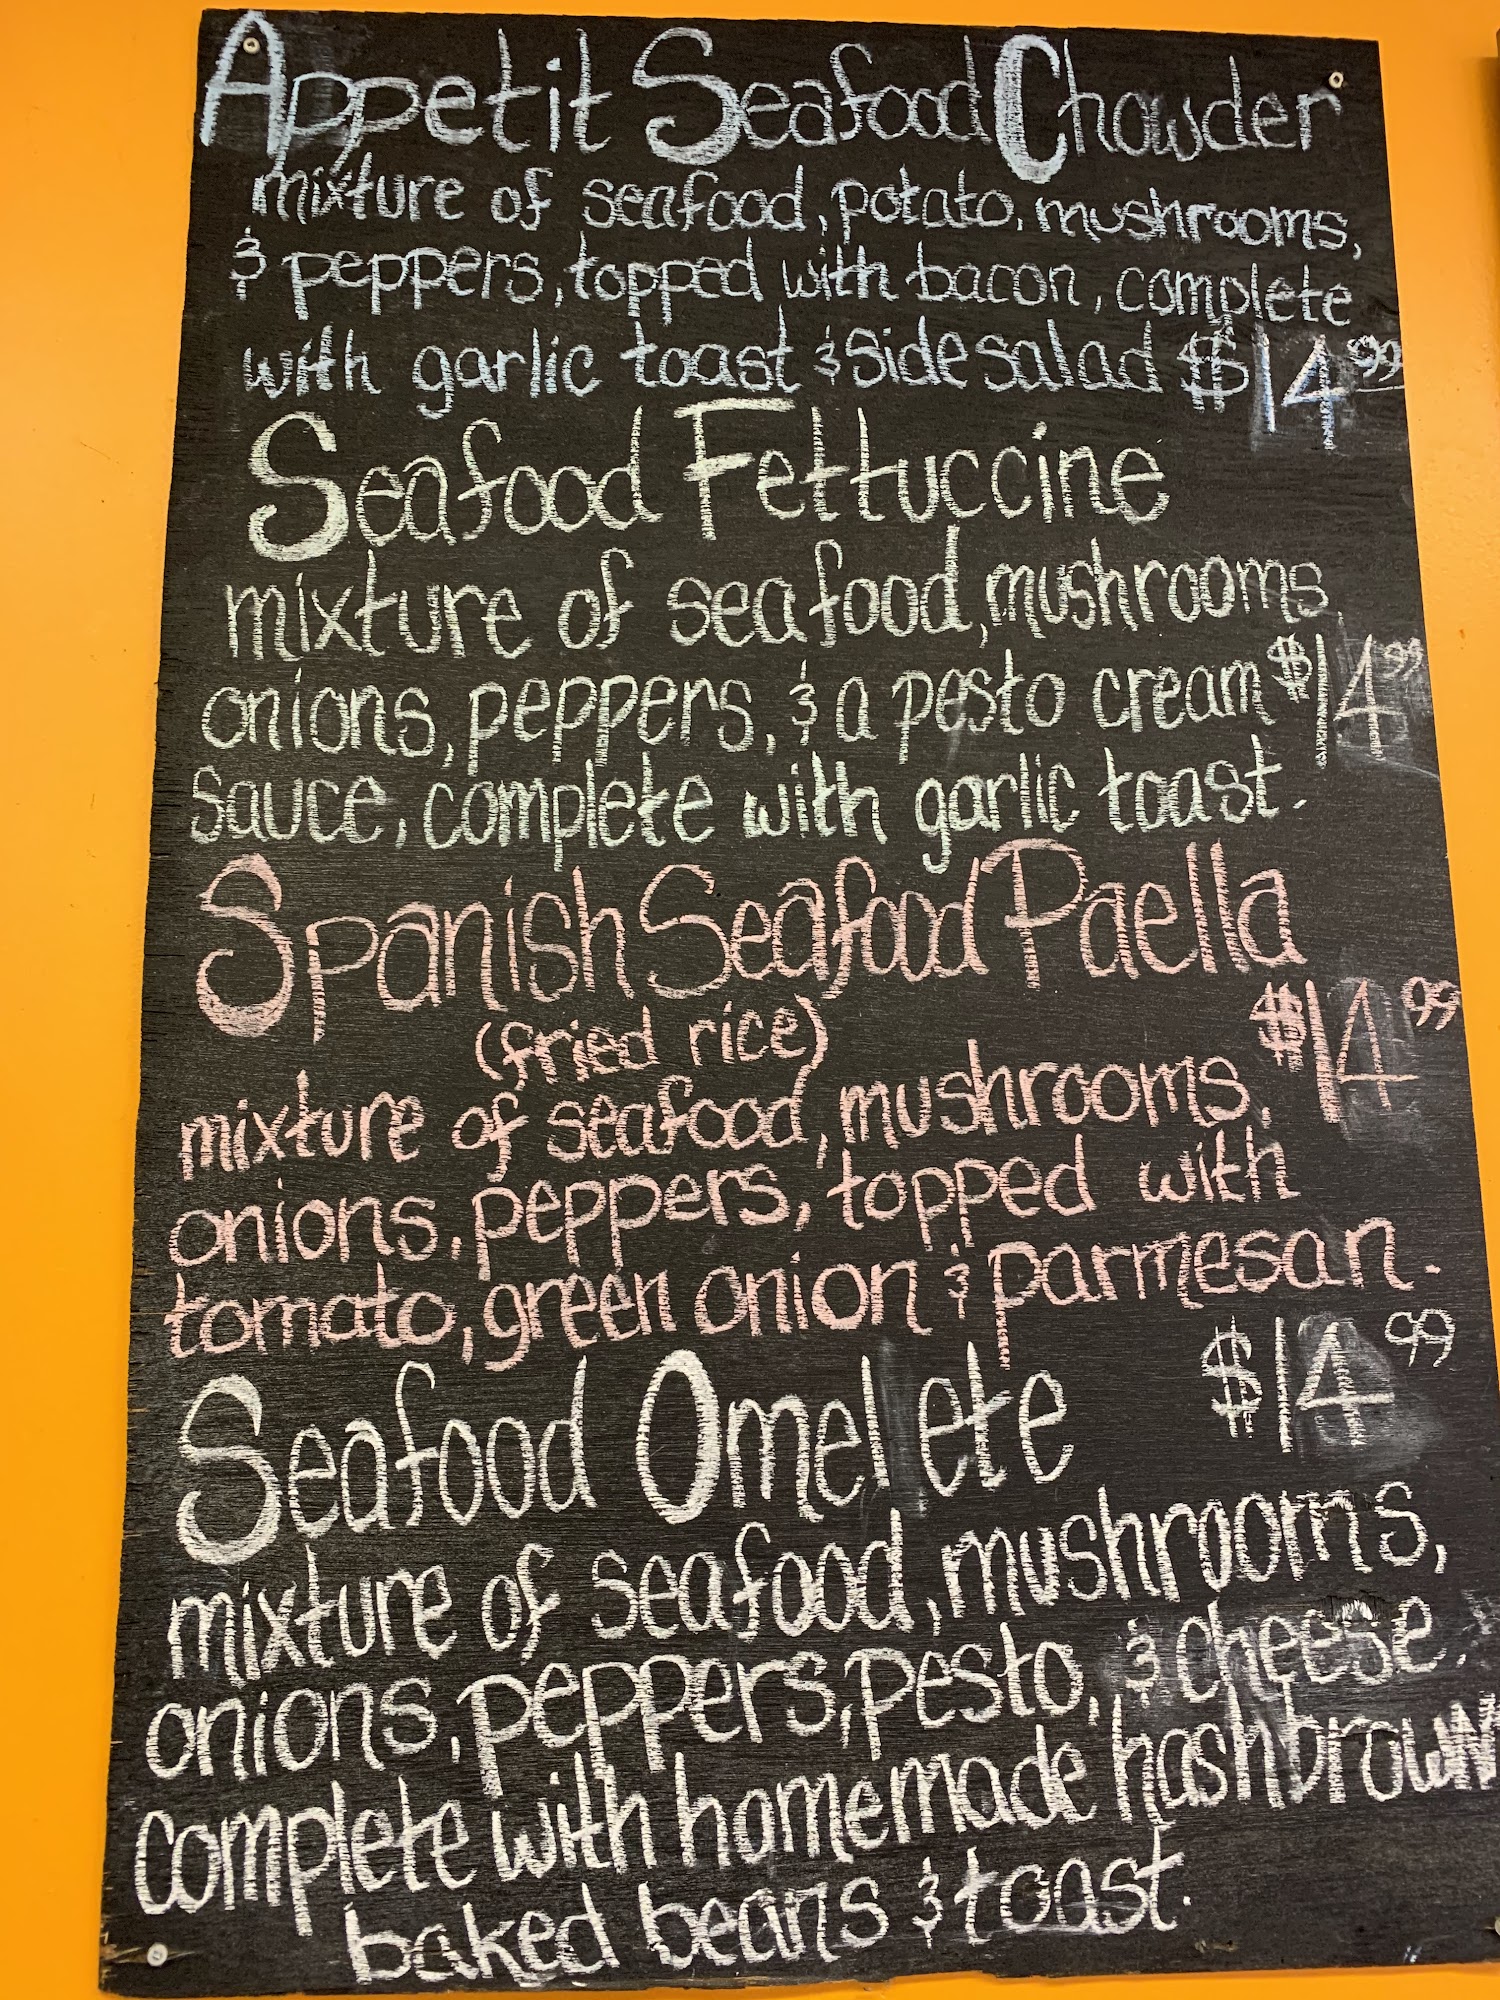 Appetit Seafood Chowder
mixture of seafood, potato, mushrooms,
& peppers, topped with bacon, complete
with garlic toast & side salad $14.99
Seafood Fettuccine
mixture of seafood, mushrooms,
onions, peppers, & a pesto cream $14.99
sauce, complete with garlic toast.
Spanish Seafood Paella
(fried rice) $14.99
mixture of seafood, mushrooms,
onions, peppers, topped with
tomato, green onion & parmesan.
Seafood Omelete $14.99
mixture of seafood, mushrooms,
onions, peppers, pesto, & cheese.
complete with homemade hashbrown
baked beans & toast.